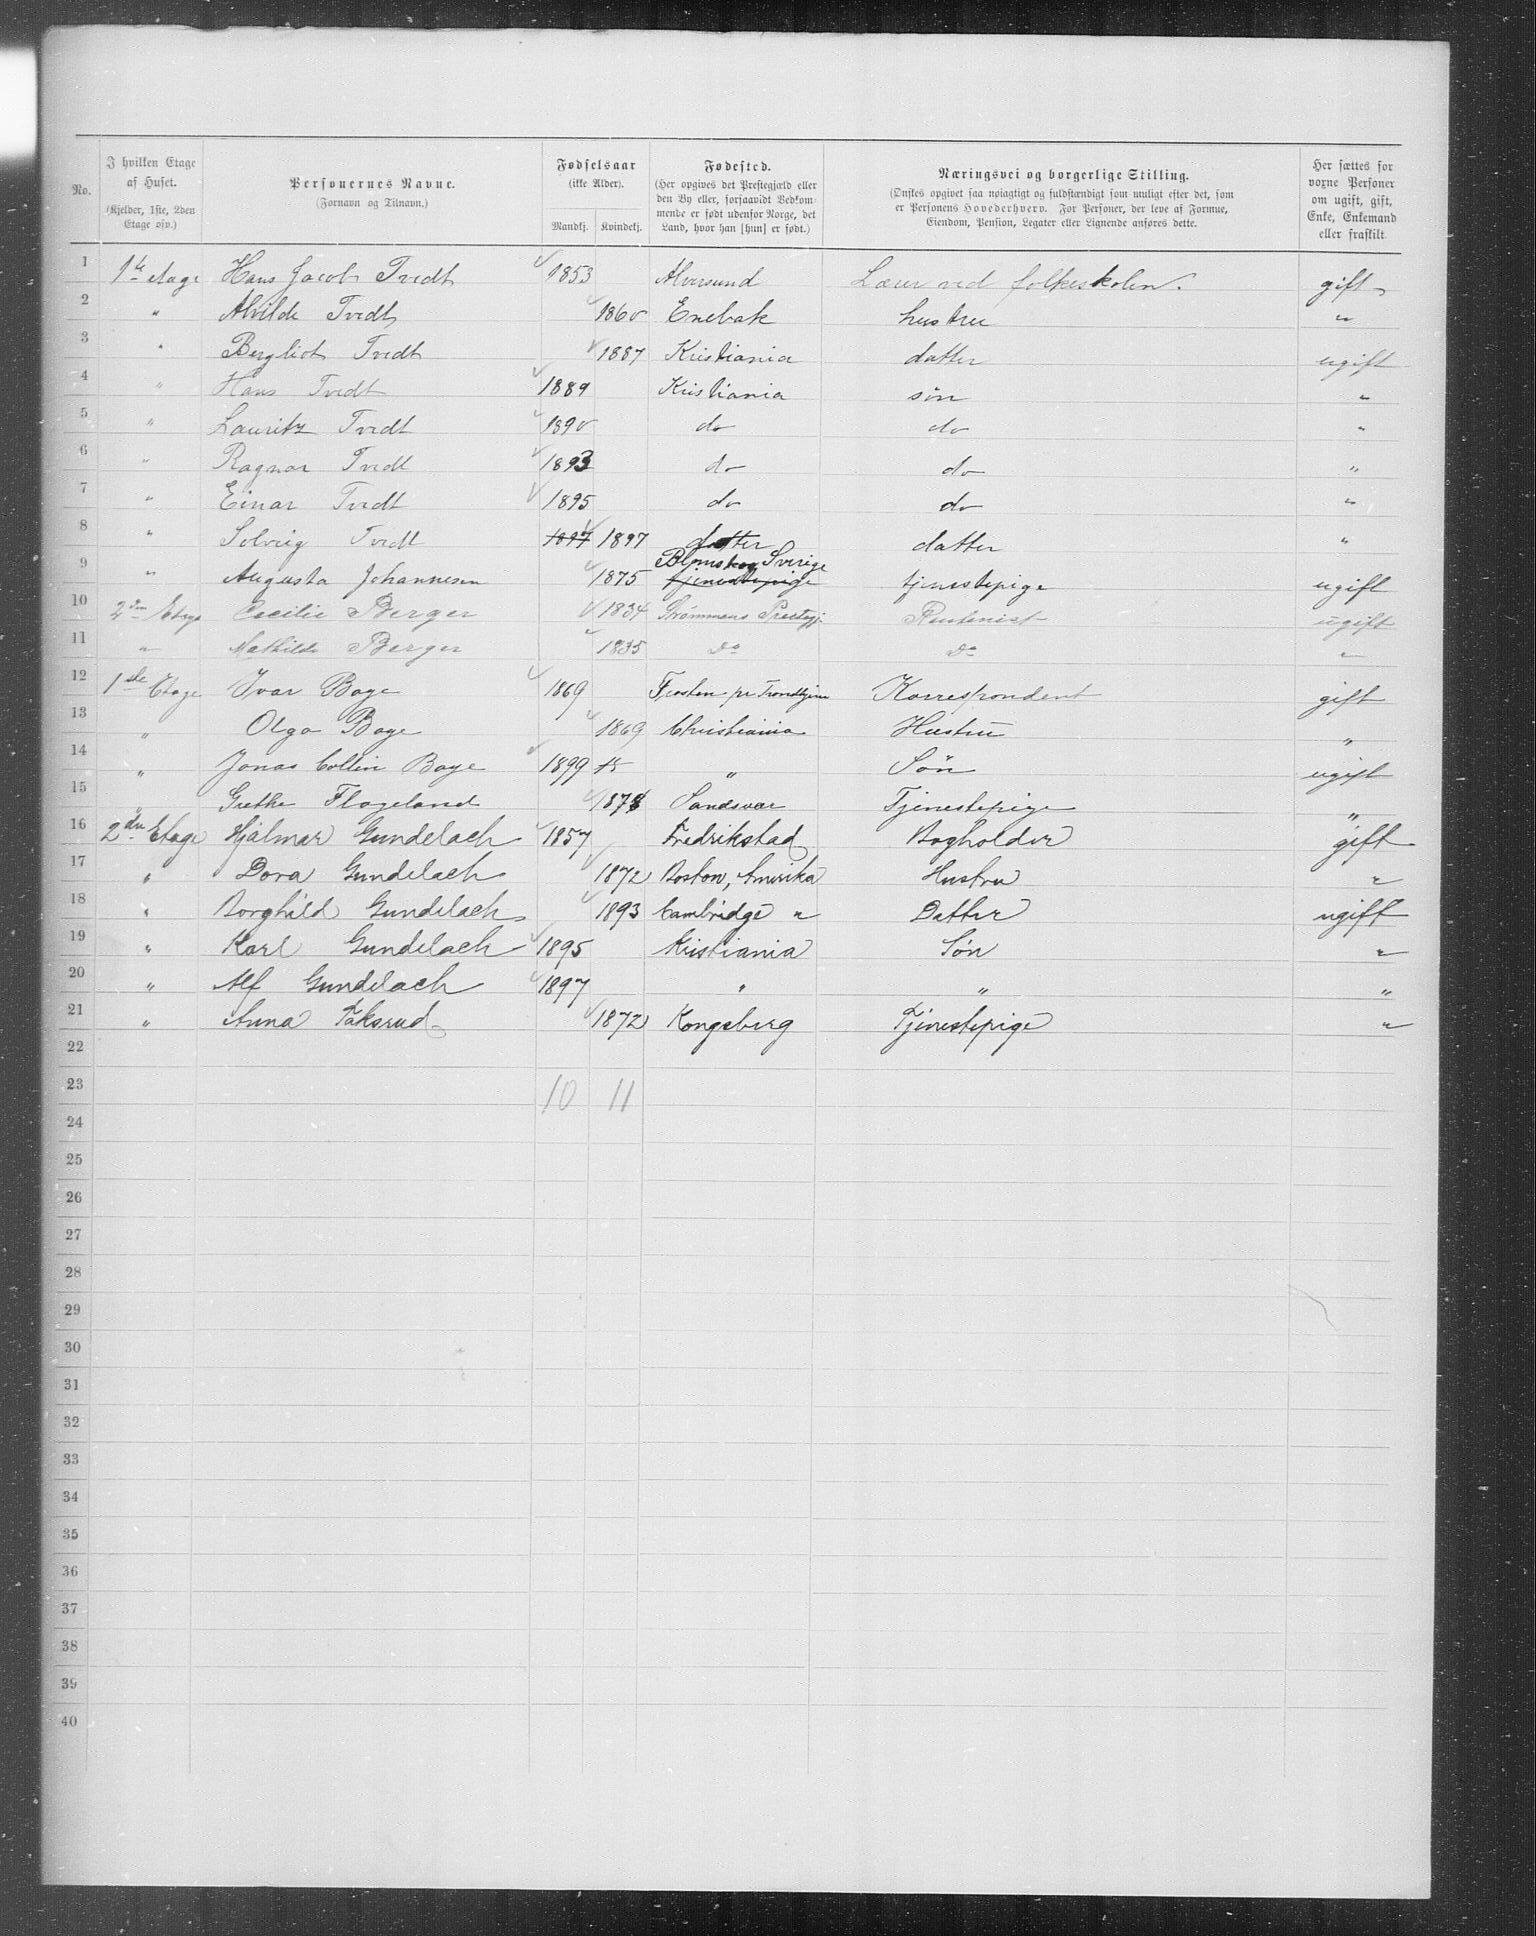 No. | I hvilken Etage af Huset. (Kjelder, 1ste, 2den Etage osv.) | Personernes Navne. (Fornavn og Tilnavn.) | Fødselsaar (ikke Alder). Mandkj. | Kvindekj. | Fødested. (Her opgives det Prestegjæld eller den By eller, forsaavidt Vedkommende er født udenfor Norge, det Land, hvor han [hun] er født.) | Næringsvei og borgerlige Stilling. (Ønskes opgivet saa nøiagtigt og fuldstændigt som muligt efter det, som er Personens Hovederhverv. For Personer, der leve af Formue, Eiendom, Pension, Legater eller Lignende anføres dette. | Her sættes for voxne Personer om ugift, gift, Enke, Enkemand eller fraskilt
1 | 1te etage | Hans Jacob Tvedt | 1853 | | Alversund | Lærer ved folkeskolen. | gift
2 | " | Alvilde Tvedt | | 1860 | Enebak | hustru | "
3 | " | Bergliot Tvedt | | 1887 | Kristiania | datter | ugift
4 | " | Hans Tvedt | 1889 | | Kristiania | søn | "
5 | " | Lauritz Tvedt | 1890 | | do | do | "
6 | " | Ragnar Tvedt | 1893 | | do | do | "
7 | " | Einar Tvedt | 1895 | | do | do | "
8 | " | Solveig Tvedt | 1897 | 1897 | datter | datter | "
9 | " | Augusta Johannesen | | 1875 | Blomskog Sverige tjenestepige | tjenestepige | ugift
10 | 2den Etage | Cecilie Berger | | 1834 | Strømmens Prestegj. | Rentenist | ugift
11 | " | Mathilde Berger | | 1835 | Do | Do | "
12 | 1ste Etage | Ivar Boye | 1869 | | Frosten pr Trondhjem | Korrespondent | gift
13 | " | Olga Boye | | 1869 | Christiania | Hustru | "
14 | " | Jonas Collin Boye | 1899 | | " | Søn | ugift
15 | " | Grethe Flageland | | | Sandsvær | Tjenestepige | "
16 | 2den Etage | Hjalmar Gundelach | 1857 | | Fredrikstad | Bogholder | gift
17 | " | Dora Gundelach | | 1872 | Boston, Amerika | Hustru | "
18 | " | Borghild Gundelach | | 1893 | Cambridge " | Datter | ugift
19 | " | Karl Gundelach | 1895 | | Kristiania | Søn | "
20 | " | Alf Gundelach | 1897 | | " | " | "
21 | " | Anna Taksrud | | 1872 | Kongsberg | Tjenestepige | "
22
23 | | | 10 | 11
24
25
26
27
28
29
30
31
32
33
34
35
36
37
38
39
40